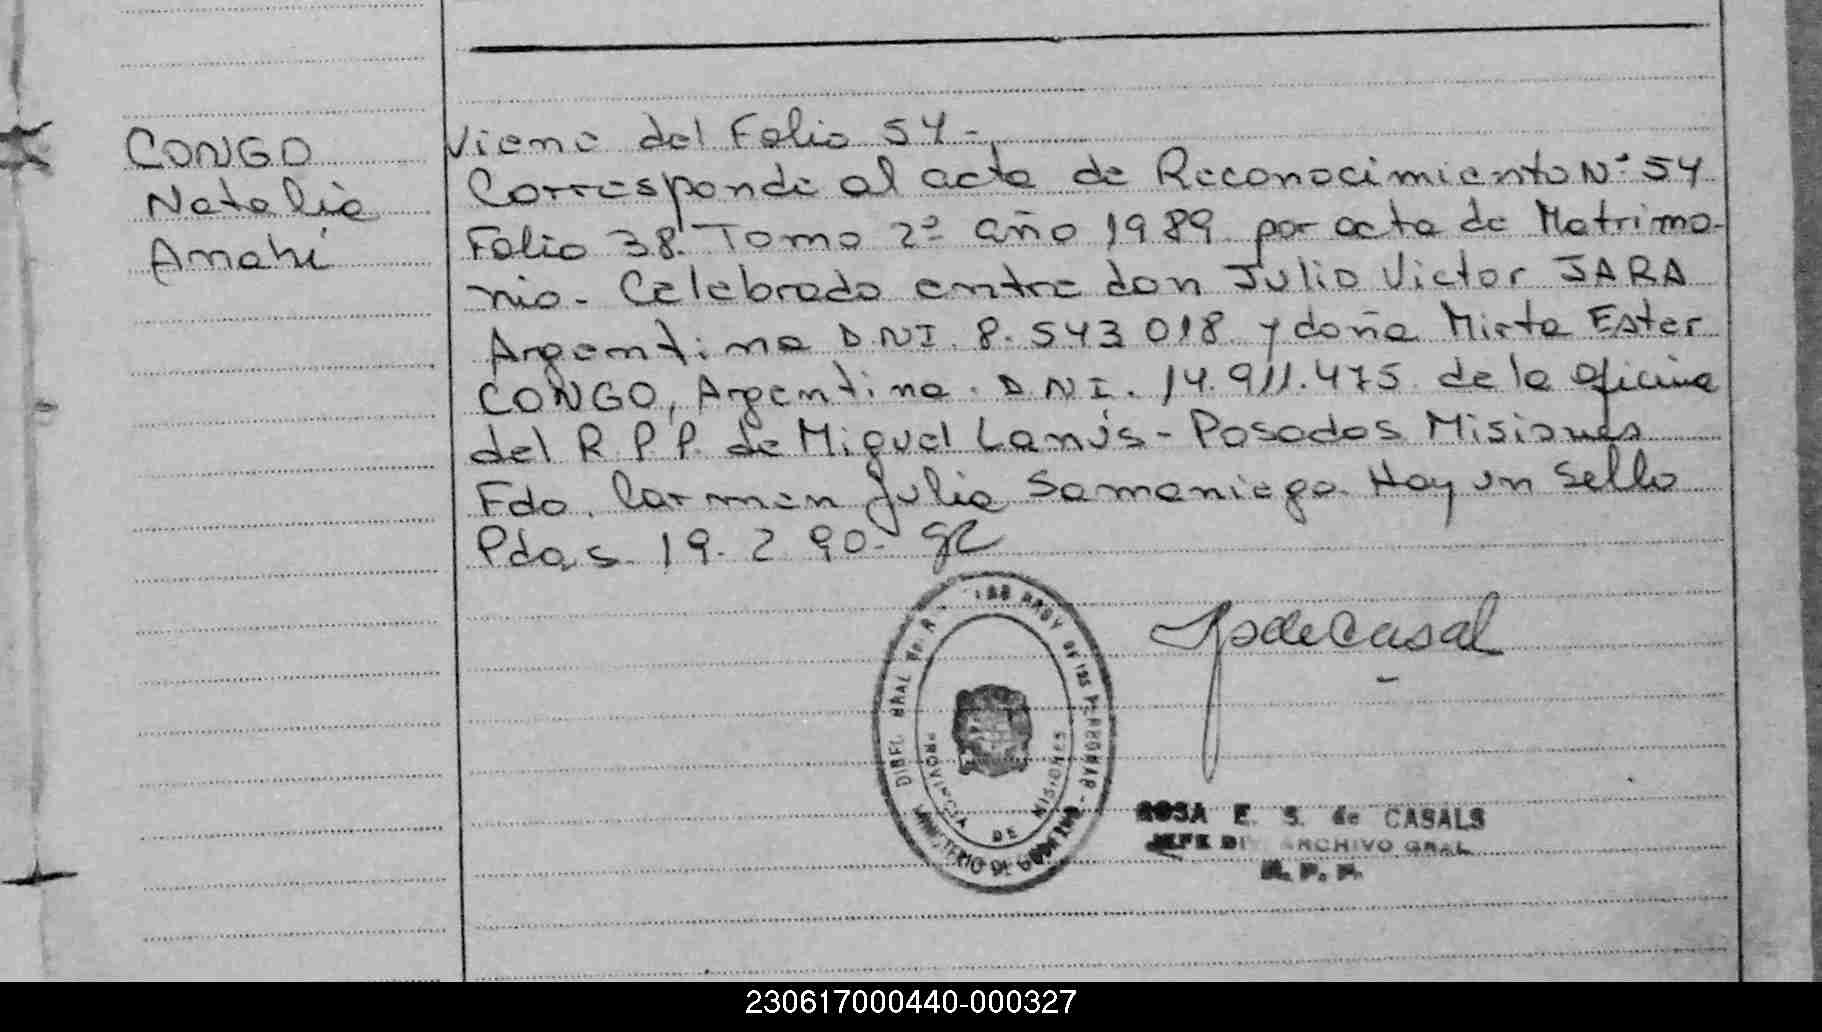 CONGO
Natalia
Amahí
Viene del Folio 54-
Corresponde al acta de Reconocimiento Nº 54
Folio 38. Tomo 2º año 1989 por acta de Matrimo-
nio- Celebrado entre don Julio Victor JARA
Argentino D.N.I. 8.543 018 y doña Mirta Ester
CONGO, Argentina. D.N.I. 14.911.475 de la oficina
del R.P.P. de Miguel Lanús - Posadas Misiones
Fdo. Carmen Julia Samaniego. Hay un sello
Pdas 19.2 90-
PROVINCIA DE MISIONES
MINISTERIO DE GOBIERNO
ROSA E. S. de CASALS
JEFE DIV. ARCHIVO GRAL.
R. P. P.
230617000440-000327